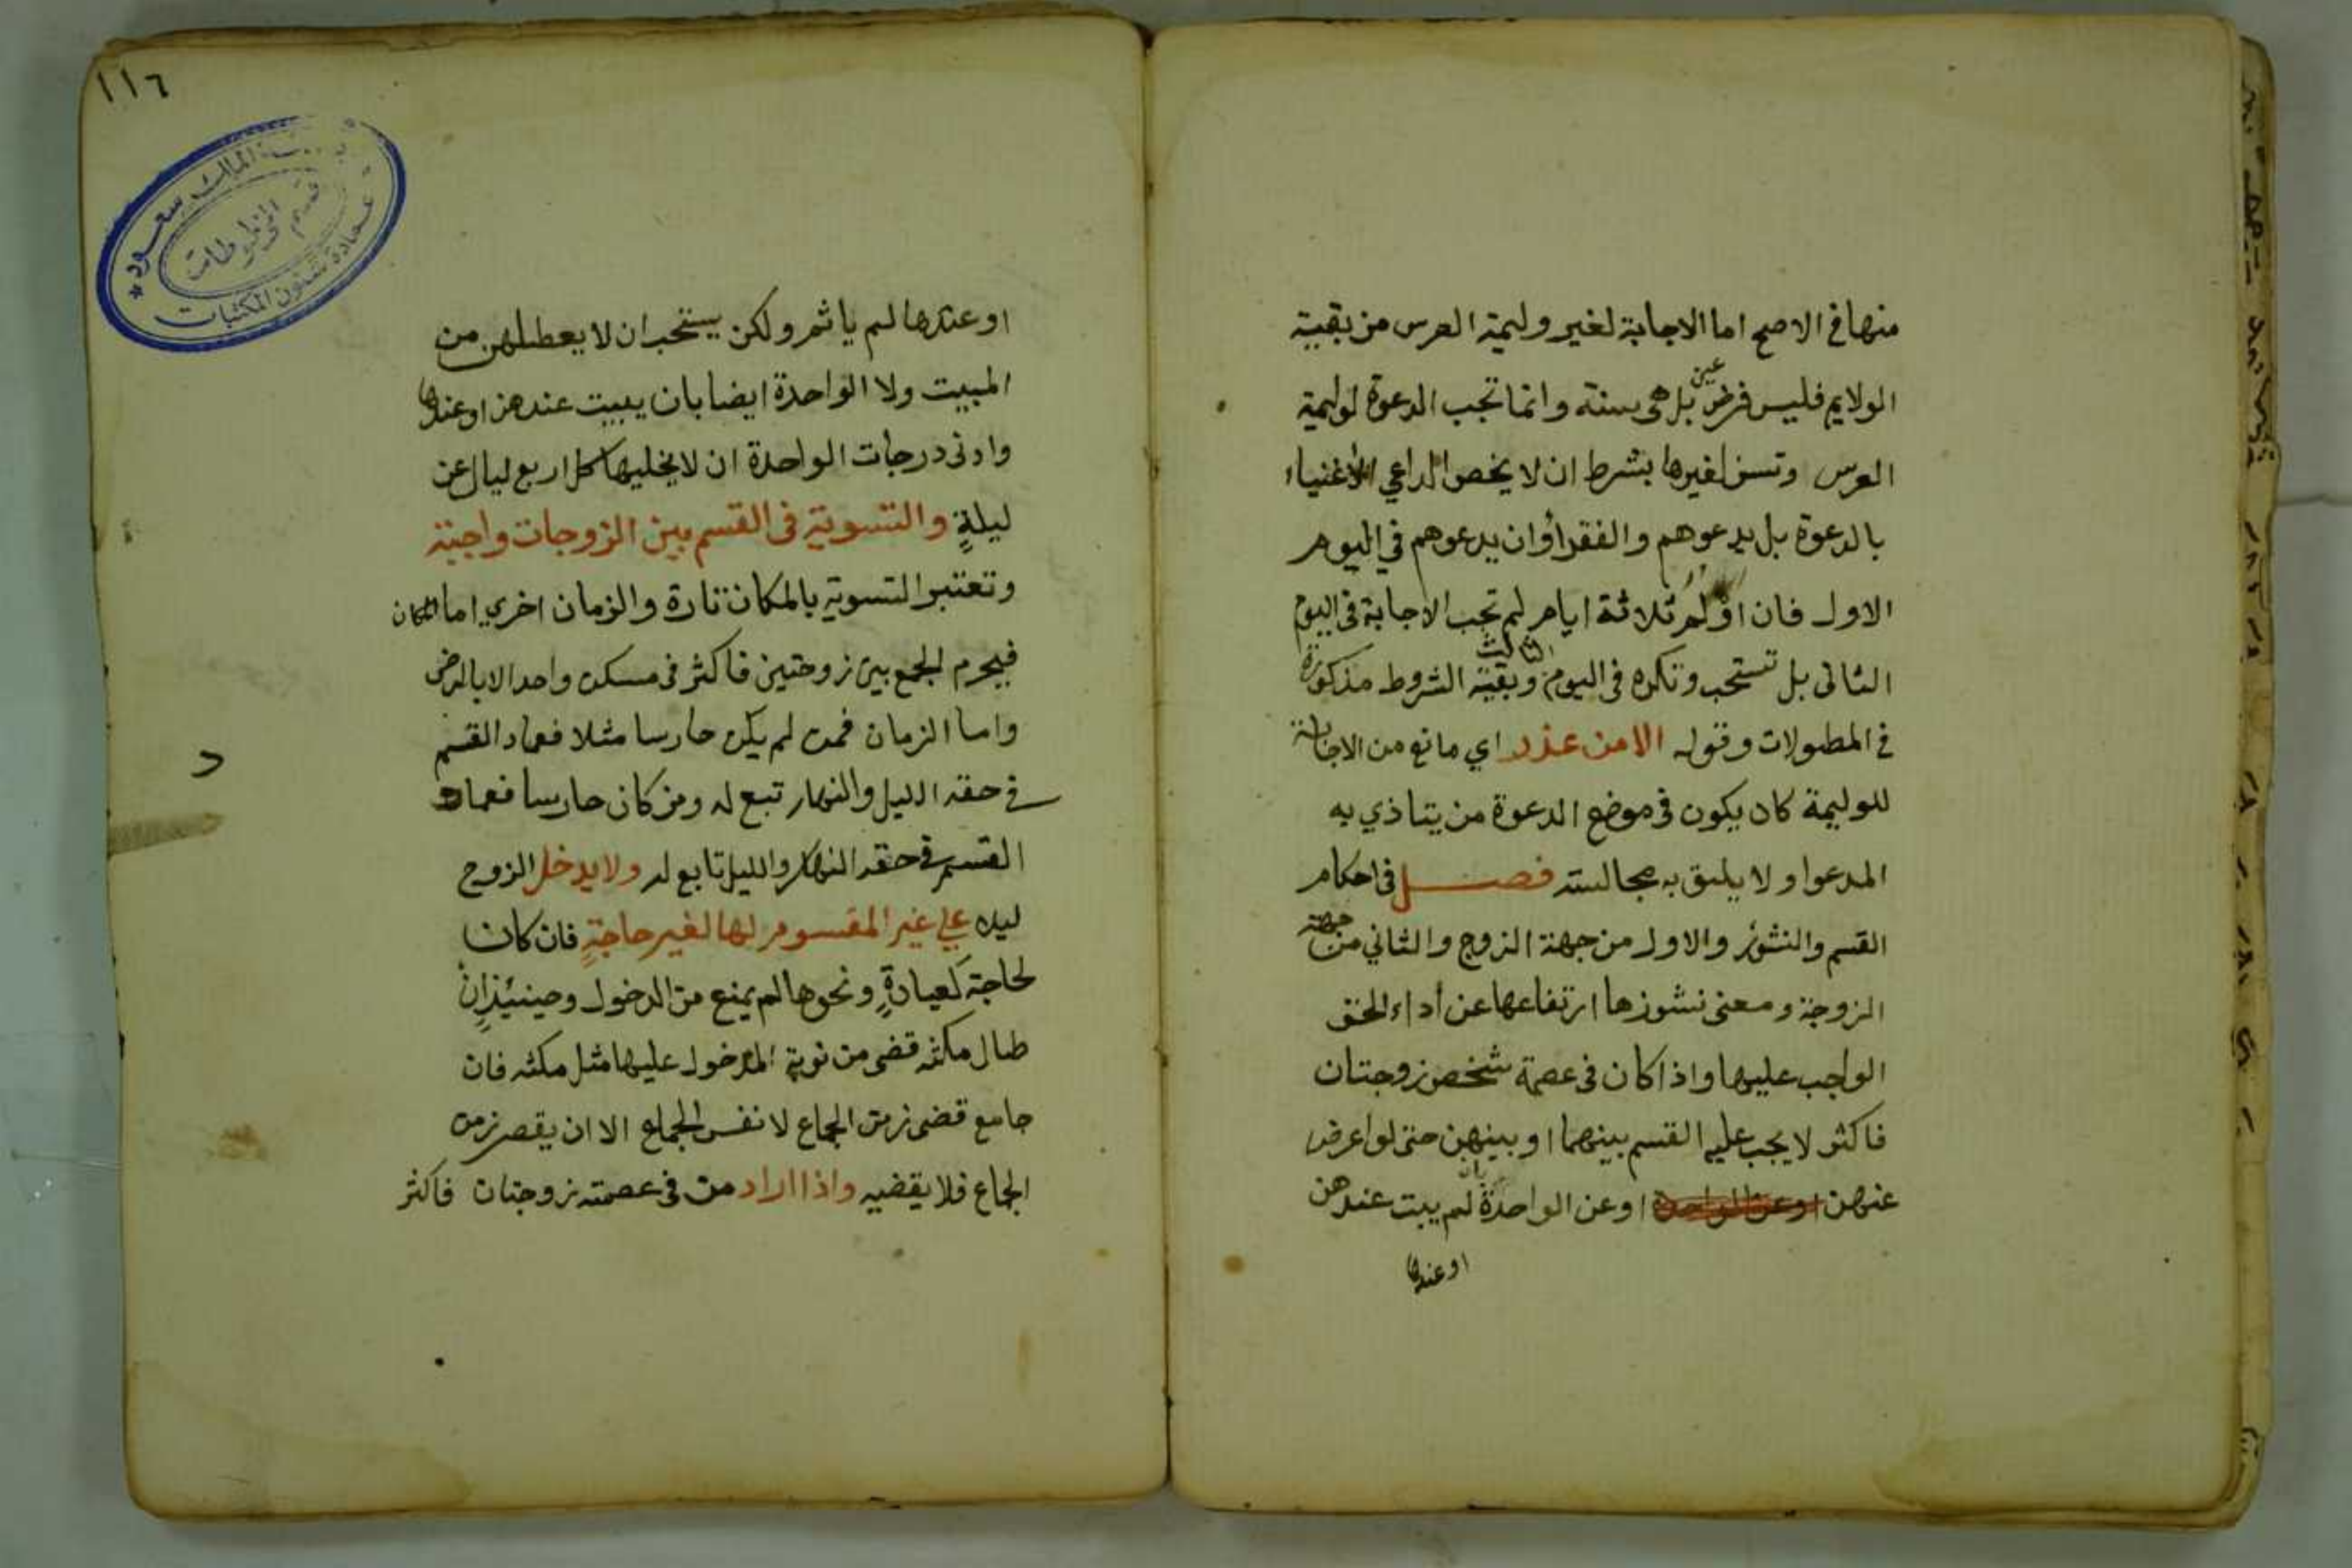 منها في الاصح اما الاجابة لغير وليمة العرس من بقية
الولايم فليس فرض عين بل هى سنة وانما تجب الدعوة لوليمة
العرس وتسن لغيرها بشرط ان لا يخص الداعي الاغنياء
بالدعوة بل يدعوهم والفقرأ وان يدعوهم في اليوم
الاول فان اولم ثلاثة ايام لم تجب الاجابة في اليوم
الثانى بل تستحب وتكره فى اليوم الثالث وبقية الشروط مذكورة
في المطولات وقوله الا من عذر اي مانع من الاجابة
للوليمة كان يكون في موضع الدعوة من يتاذي به
المدعوا و لا يليق به مجالسته فصل في احكام
القسم والنشوز والاول من جهة الزوج والثاني من جهة
الزوجة ومعنى نشوزها ارتفاعها عن أداء الحق
الواجب عليها واذا كان فى عصمة شخص زوجتان
فاكثر لا يجب عليه القسم بينهما او بينهن حتى لو اعرض
عنهن او عن الواحدة او عن الواحدة بان لم يبت عندهن
او عندها
١١٦
جامعة الملك سعود
قسم المخطوطات
عمادة شئون المكتبات
او عندها لم ياثم ولكن يستحب ان لا يعطلهن من
المبيت ولا الواحدة ايضا بان يبيت عندهن او عندها
وادنى درجات الواحدة ان لا يخليها كل اربع ليال عن
ليلةٍ والتسوية فى القسم بين الزوجات واجبة
وتعتبر التسوية بالمكان تارة والزمان اخري اما المكان
فيحرم الجمع بين زوجتين فاكثر فى مسكن واحد الا بالرضى
واما الزمان فمن لم يكن حارسا مثلا فعماد القسم
في حقه الليل والنهار تبع له ومن كان حارسا فعماد
القسم في حقه النهار والليل تابع له ولا يدخل الزوج
ليلا علي غير المقسوم لها لغير حاجةٍ فان كان
لحاجة كعيادةٍ ونحوها لم يمنع من الدخول وحينيئذٍ انْ
طال مكثه قضى من نوبة المدخول عليها مثل مكثه فان
جامع قضى زمن الجماع لا نفس الجماع الا ان يقصر زمن
الجماع فلا يقضيه واذا اراد من فى عصمته زوجتان فاكثر